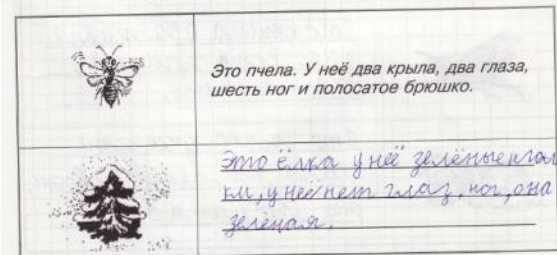 Это пчела. У неё два крыла, два глаза,
шесть ног и полосатое брюшко.
Это ёлка у неё зелёные игол
ки, у неё нет глаз, ног, она
зелёная.